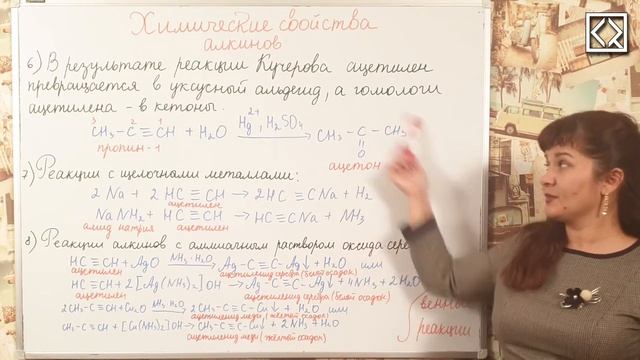 Химические свойства
алкинов
6) В результате реакции Кучерова ацетилен
превращается в уксусный альдегид, а гомологи
ацетилена - в кетоны.
3 2 1
CH₃-C≡CH + H₂O Hg²⁺, H₂SO₄ → CH₃-C-CH₃
пропин-1
O
ацетон
7) Реакции с щелочными металлами:
2Na + 2HC≡CH → 2HC≡CNa + H₂
ацетилен
NaNH₂ + HC≡CH → HC≡CNa + NH₃
амид натрия ацетилен
8) Реакции алкинов с аммиачным раствором оксида сере
HC≡CH + AgO NH₃·H₂O → Ag-C≡C-Ag↓ + H₂O или
ацетилен ацетиленид серебра (белый осадок)
HC≡CH + 2[Ag(NH₃)₂]OH → Ag-C≡C-Ag↓ + 4NH₃ + 2H₂O
ацетилен ацетиленид серебра (белый осадок)
2CH₃-C≡CH + Cu₂O NH₃·H₂O → 2CH₃-C≡C-Cu↓ + H₂O или
ацетиленид меди (жёлтый осадок)
CH₃-C≡CH + [Cu(NH₃)₂]OH → CH₃-C≡C-Cu↓ + 2NH₃ + H₂O
ацетиленид меди (жёлтый осадок)
венны
реакции